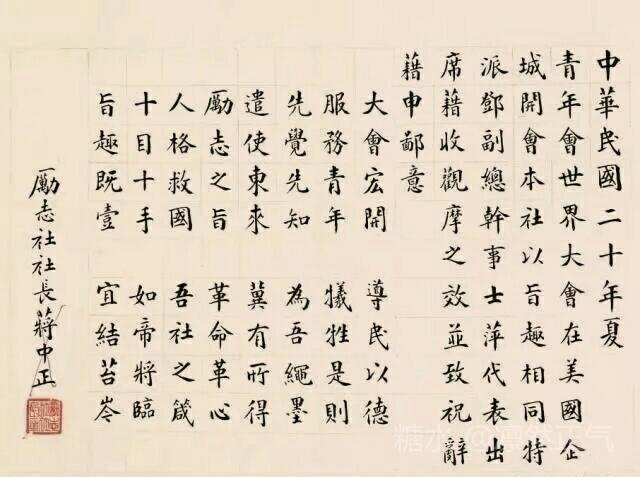 中華民國二十年夏
青年會世界大會在美國企
城開會本社以旨趣相同特
派鄧副總幹事士萍代表出
席藉收觀摩之效並致祝辭
藉申鄙意
大會宏開 導民以德
服務青年 犧牲是則
先覺先知 為吾繩墨
遣使東來 冀有所得
勵志之旨 革命革心
人格救國 吾社之箴
十目十手 如帝將臨
旨趣既壹 宜結苔岑
勵志社社長蔣中正